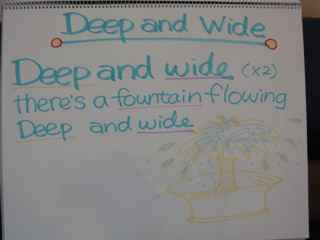 Deep and Wide
Deep and wide (x2)
there's a fountain flowing
Deep and wide